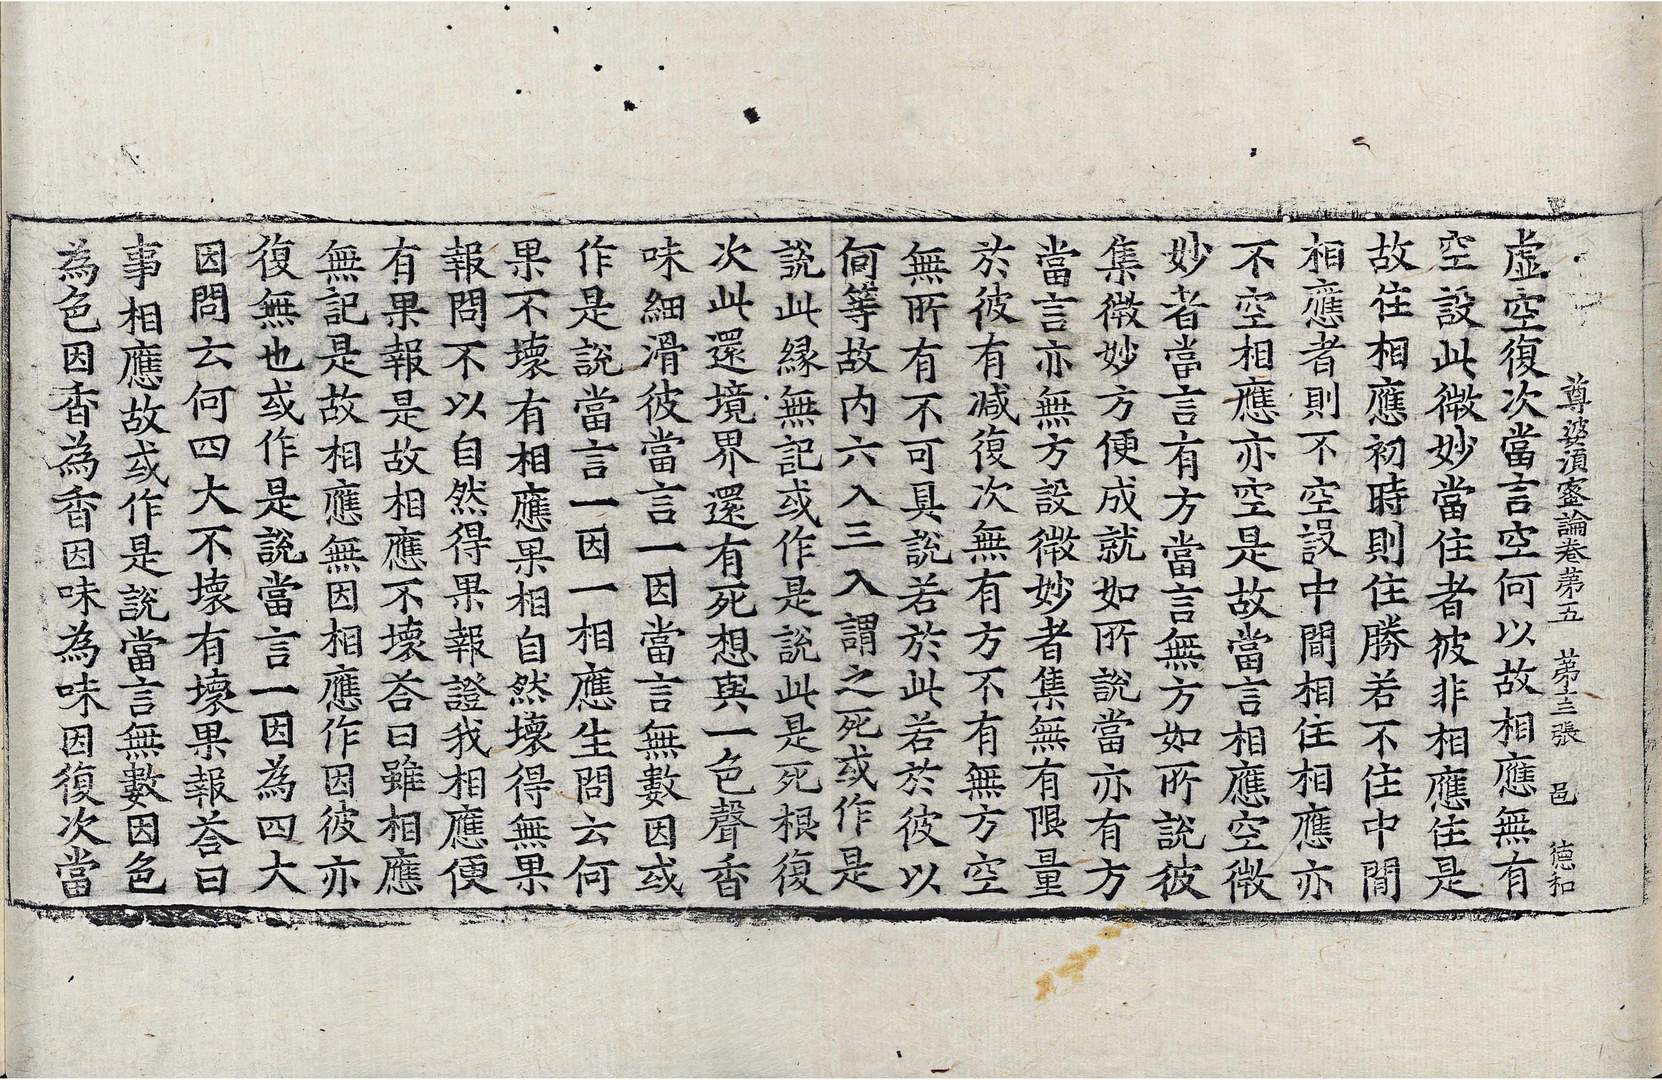 尊婆須蜜論卷第五　第十三張　邑　德和
虛空復次當言空何以故相應無有
空設此微妙當住者彼非相應住是
故住相應初時則住勝若不住中閒
相應者則不空設中間相住相應亦
不空相應亦空是故當言相應空微
妙者當言有方當言無方如所說彼
集微妙方便成就如所說當亦有方
當言亦無方設微妙者集無有限量
於彼有減復次無有方不有無方空
無所有不可具說若於此若於彼以
何等故內六入三入謂之死或作是
說此緣無記或作是說此是死根復
次此還境界還有死想與一色聲香
味細滑彼當言一因當言無數因或
作是說當言一因一相應生問云何
果不壞有相應果相自然壞得無果
報問不以自然得果報證我相應便
有果報是故相應不壞答曰雖相應
無記是故相應無因相應作因彼亦
復無也或作是說當言一因為四大
因問云何四大不壞有壞果報答曰
事相應故或作是說當言無數因色
為色因香為香因味為味因復次當